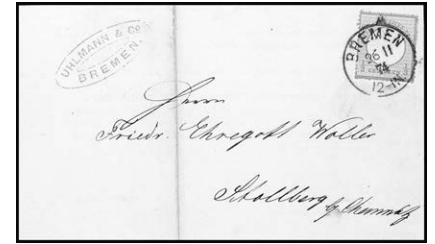 UHLMANN & Co.
BREMEN.
BREMEN
26 11
74
12-1N
Herrn
Friedr. Ehregott Woller
Stollberg b/Chemnitz